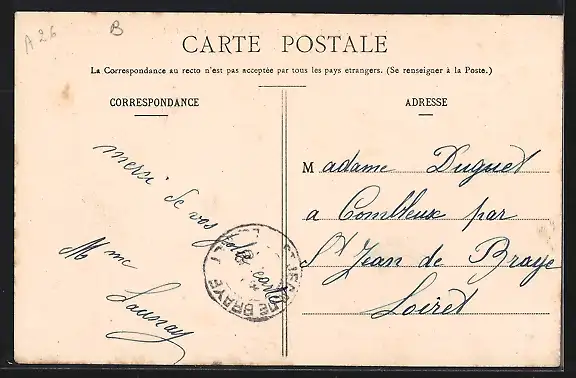 A 26
B
CARTE POSTALE
La Correspondance au recto n'est pas acceptée par tous les pays etrangers. (Se renseigner à la Poste.)
CORRESPONDANCE
merci de vos jolie carte
Mme
Launay
ST JEAN DE BRAYE
ADRESSE
Madame Duguet
a Combleux par
St Jean de Braye
Loiret